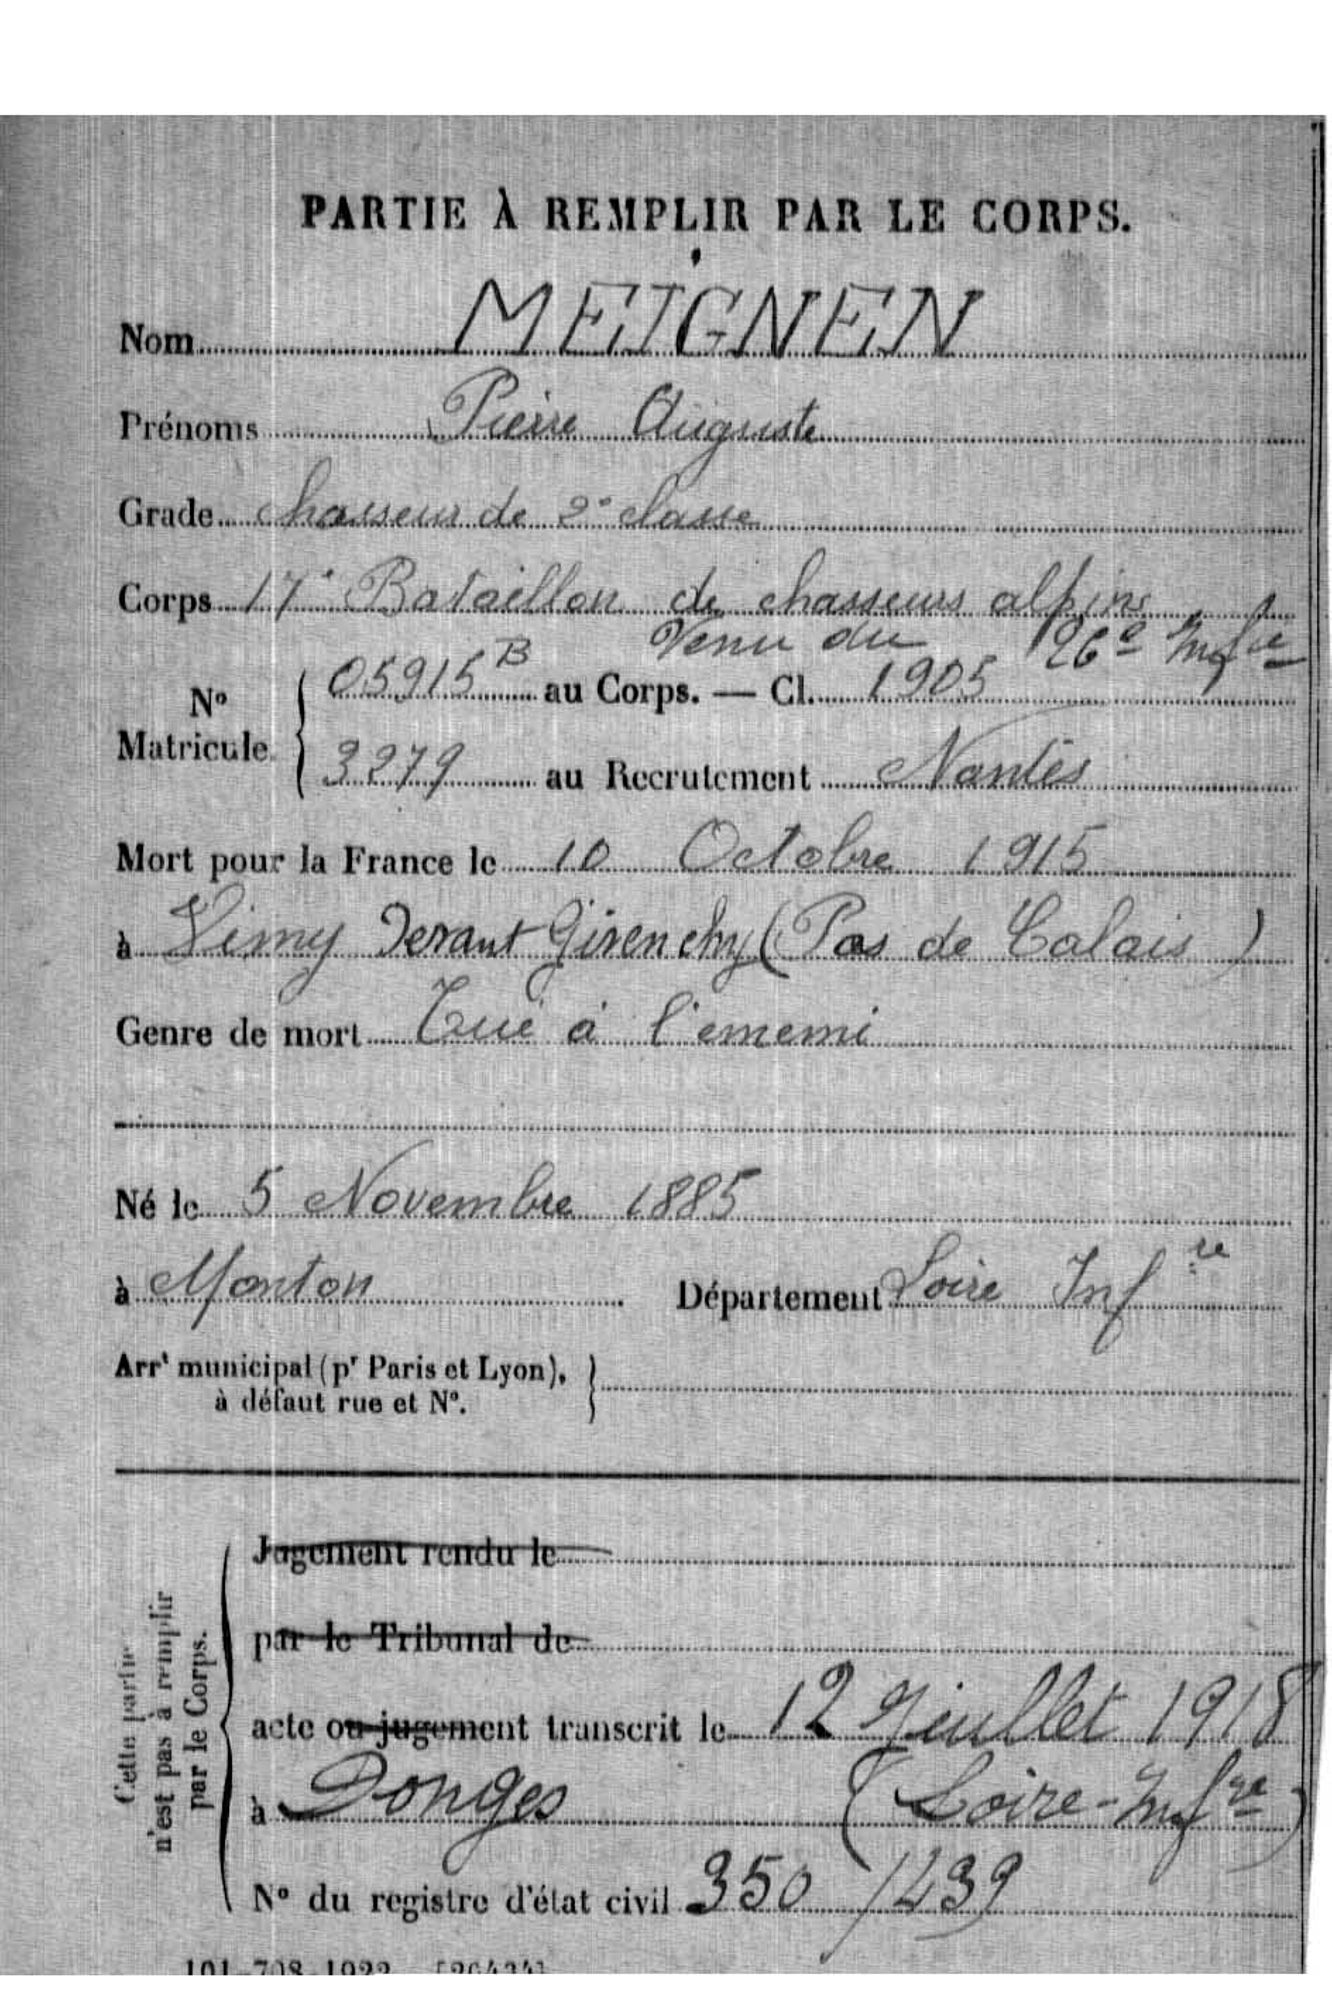 PARTIE À REMPLIR PAR LE CORPS.
Nom MEIGNEN
Prénoms Pierre Auguste
Grade chasseur de 2e classe
Corps 17e Bataillon de chasseurs alpins
Venu du 26e Infie
No Matricule. 05915 B au Corps. — Cl. 1905
3279 au Recrutement Nantes
Mort pour la France le 10 Octobre 1915
à Vimy Devant Givenchy (Pas de Calais)
Genre de mort Tué à l'ememi
Né le 5 Novembre 1885
à Monton Département Loire Infre
Arrt municipal (pr Paris et Lyon),
à défaut rue et No.
Cette partie
n'est pas à remplir
par le Corps.
Jugement rendu le
par le Tribunal de
acte ou jugement transcrit le 12 Juillet 1918
à Donges (Loire-Infre)
No du registre d'état civil 350/239
101-708-1922. [26434]